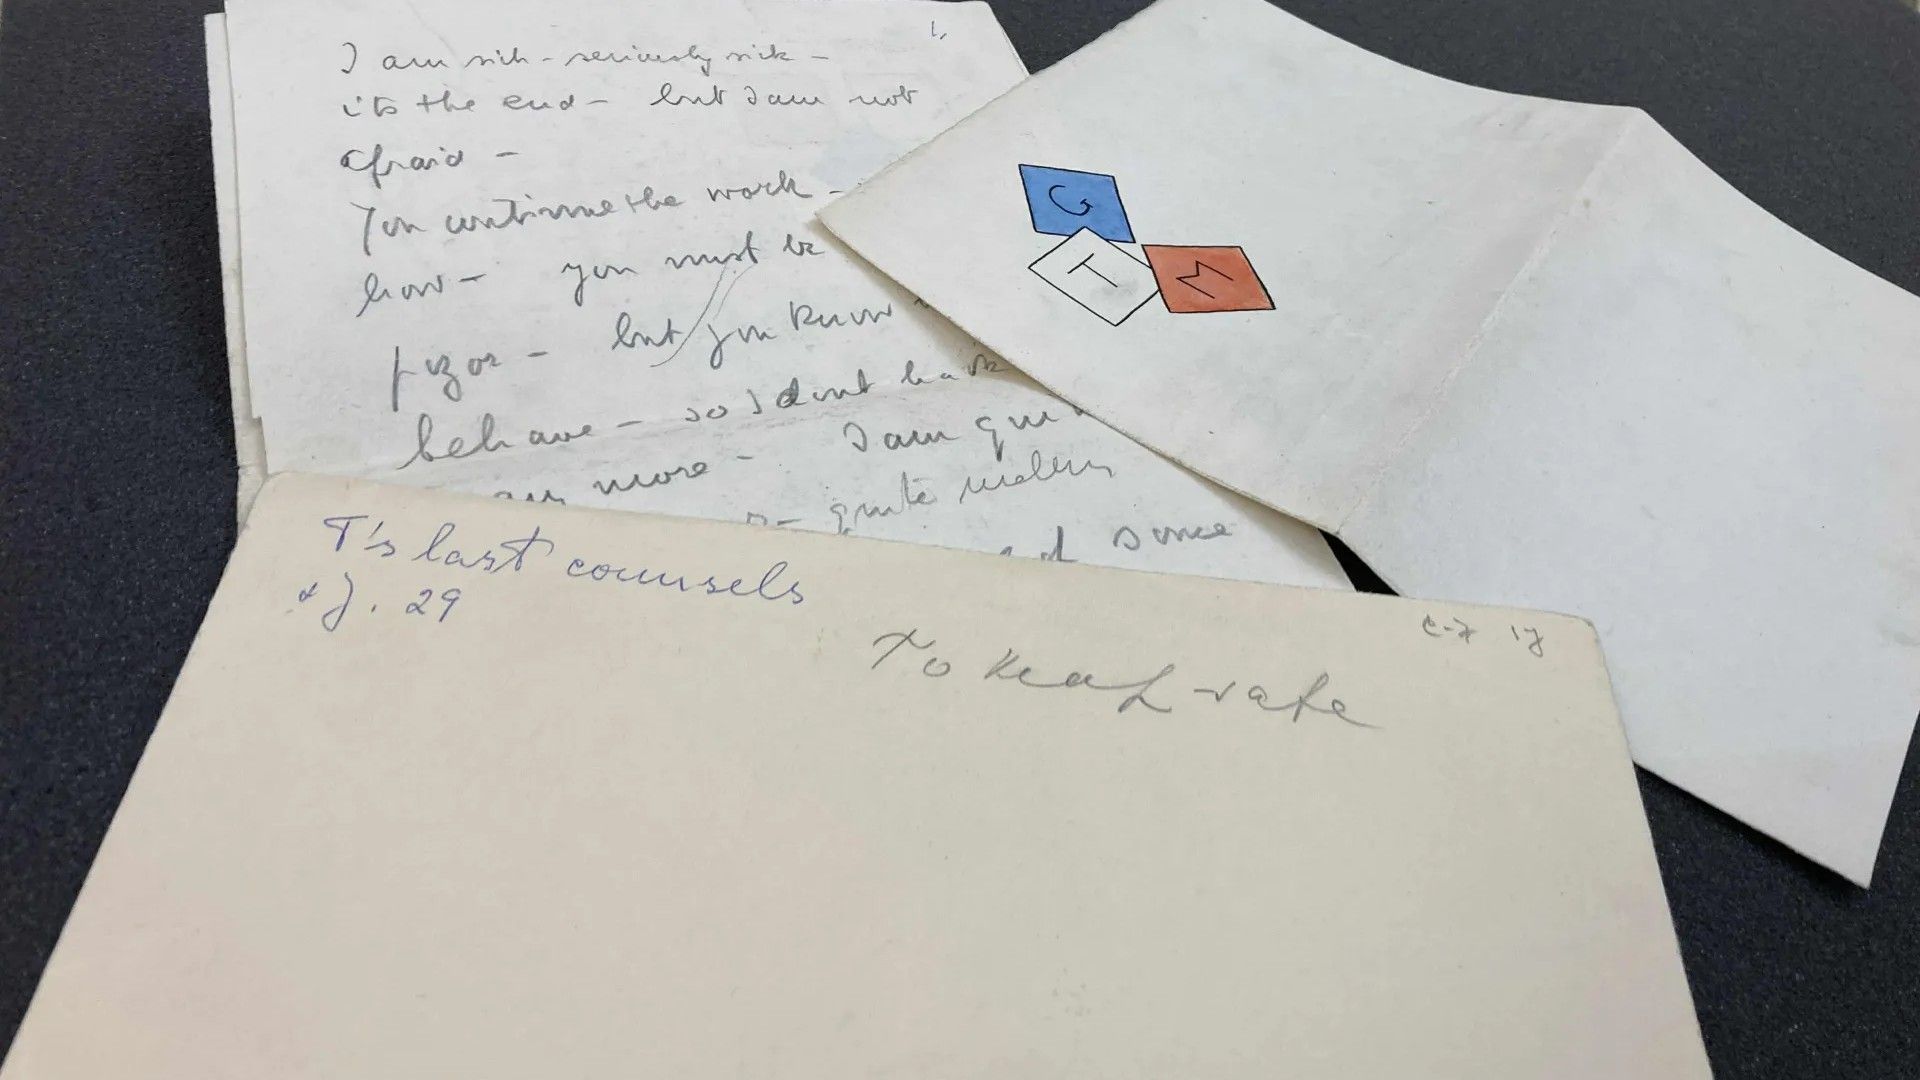 1.
I am sick - seriously sick -
its the end - but I am not
afraid -
You continue the work -
how - you must be
but you know
behave - so I dont have
any more - I am qui
quite
since
G
T
M
T's last counsels
29
To Keap safe